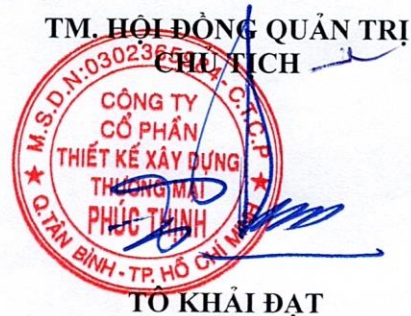 TM. HỘI ĐỒNG QUẢN TRỊ
CHỦ TỊCH
M.S.D.N:
C.T.C.P
CÔNG TY
CỔ PHẦN
THIẾT KẾ XÂY DỰNG
THƯƠNG MẠI
PHÚC THỊNH
Q.TÂN BÌNH - TP. HỒ CHÍ MINH
TÔ KHẢI ĐẠT